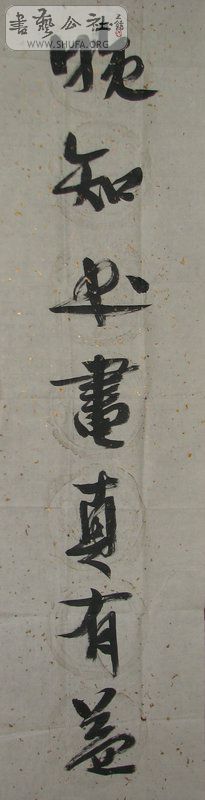 書藝公社
WWW.SHUFA.ORG
晚知书畫真有益